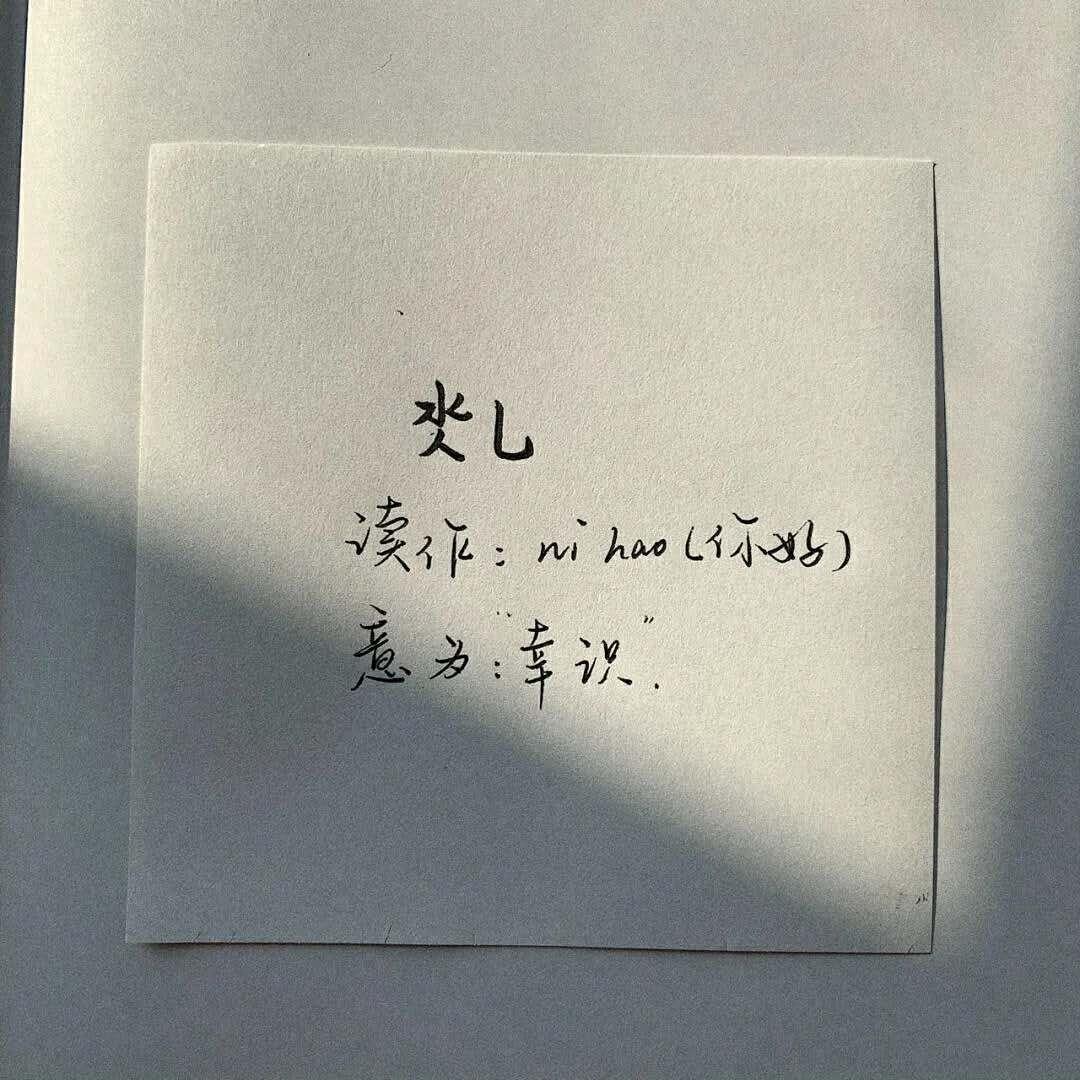 氼乚
读作：ni hao（你好）
意为：“幸识”．